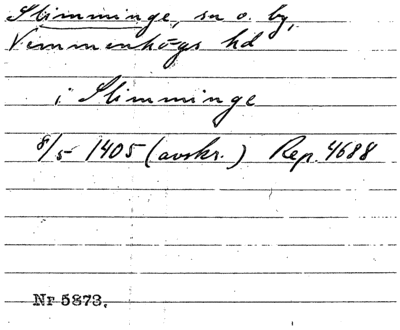 Slimminge, sn o. by,
Vemmenhögs hd
i Slimminge
8/5 1405 (avskr.) Rep. 4688
Nr 5873.